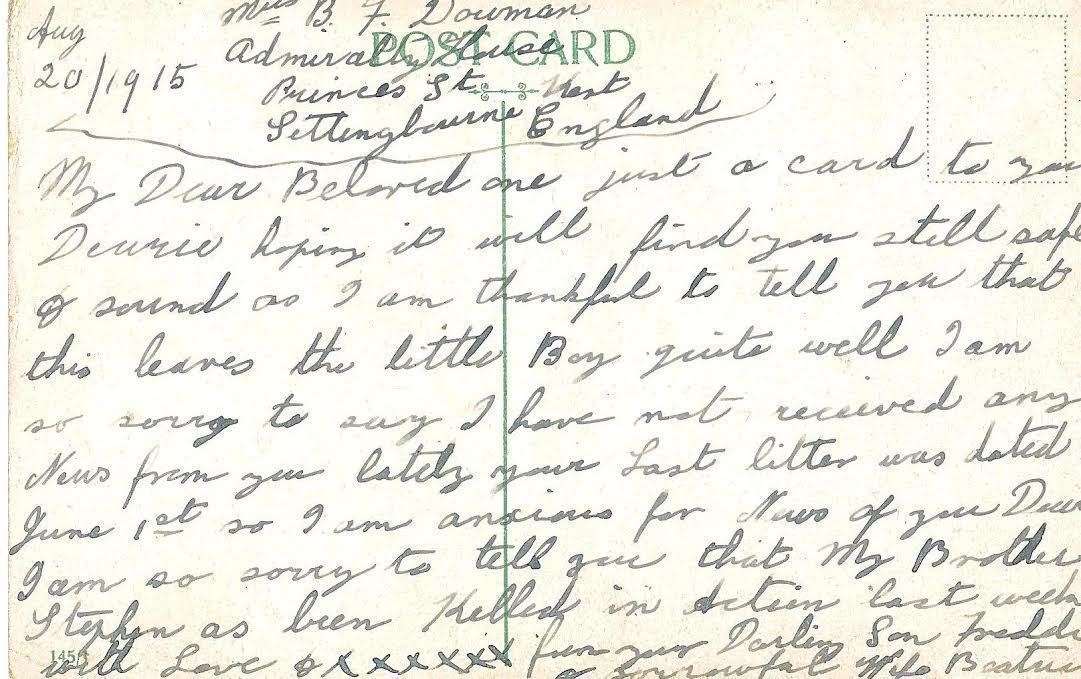 Aug
20/1915
Mrs B. F. Dowman
Admiralty House
POST CARD
Princes St Kent
Settingbourne England
My Dear Beloved one just a card to you
Dearie hoping it will find you still safe
& sound as I am thankful to tell you that
this leaves the little Boy quite well I am
so sorry to say I have not received any
News from you lately your Last litter was dated
June 1st so I am anxious for News of you Dear
I am so sorry to tell you that My Brother
Stephen as been Killed in Action last week
with Love & xxxxxxx from your Darling Son Freddi
& sorrowful Wife Beatric